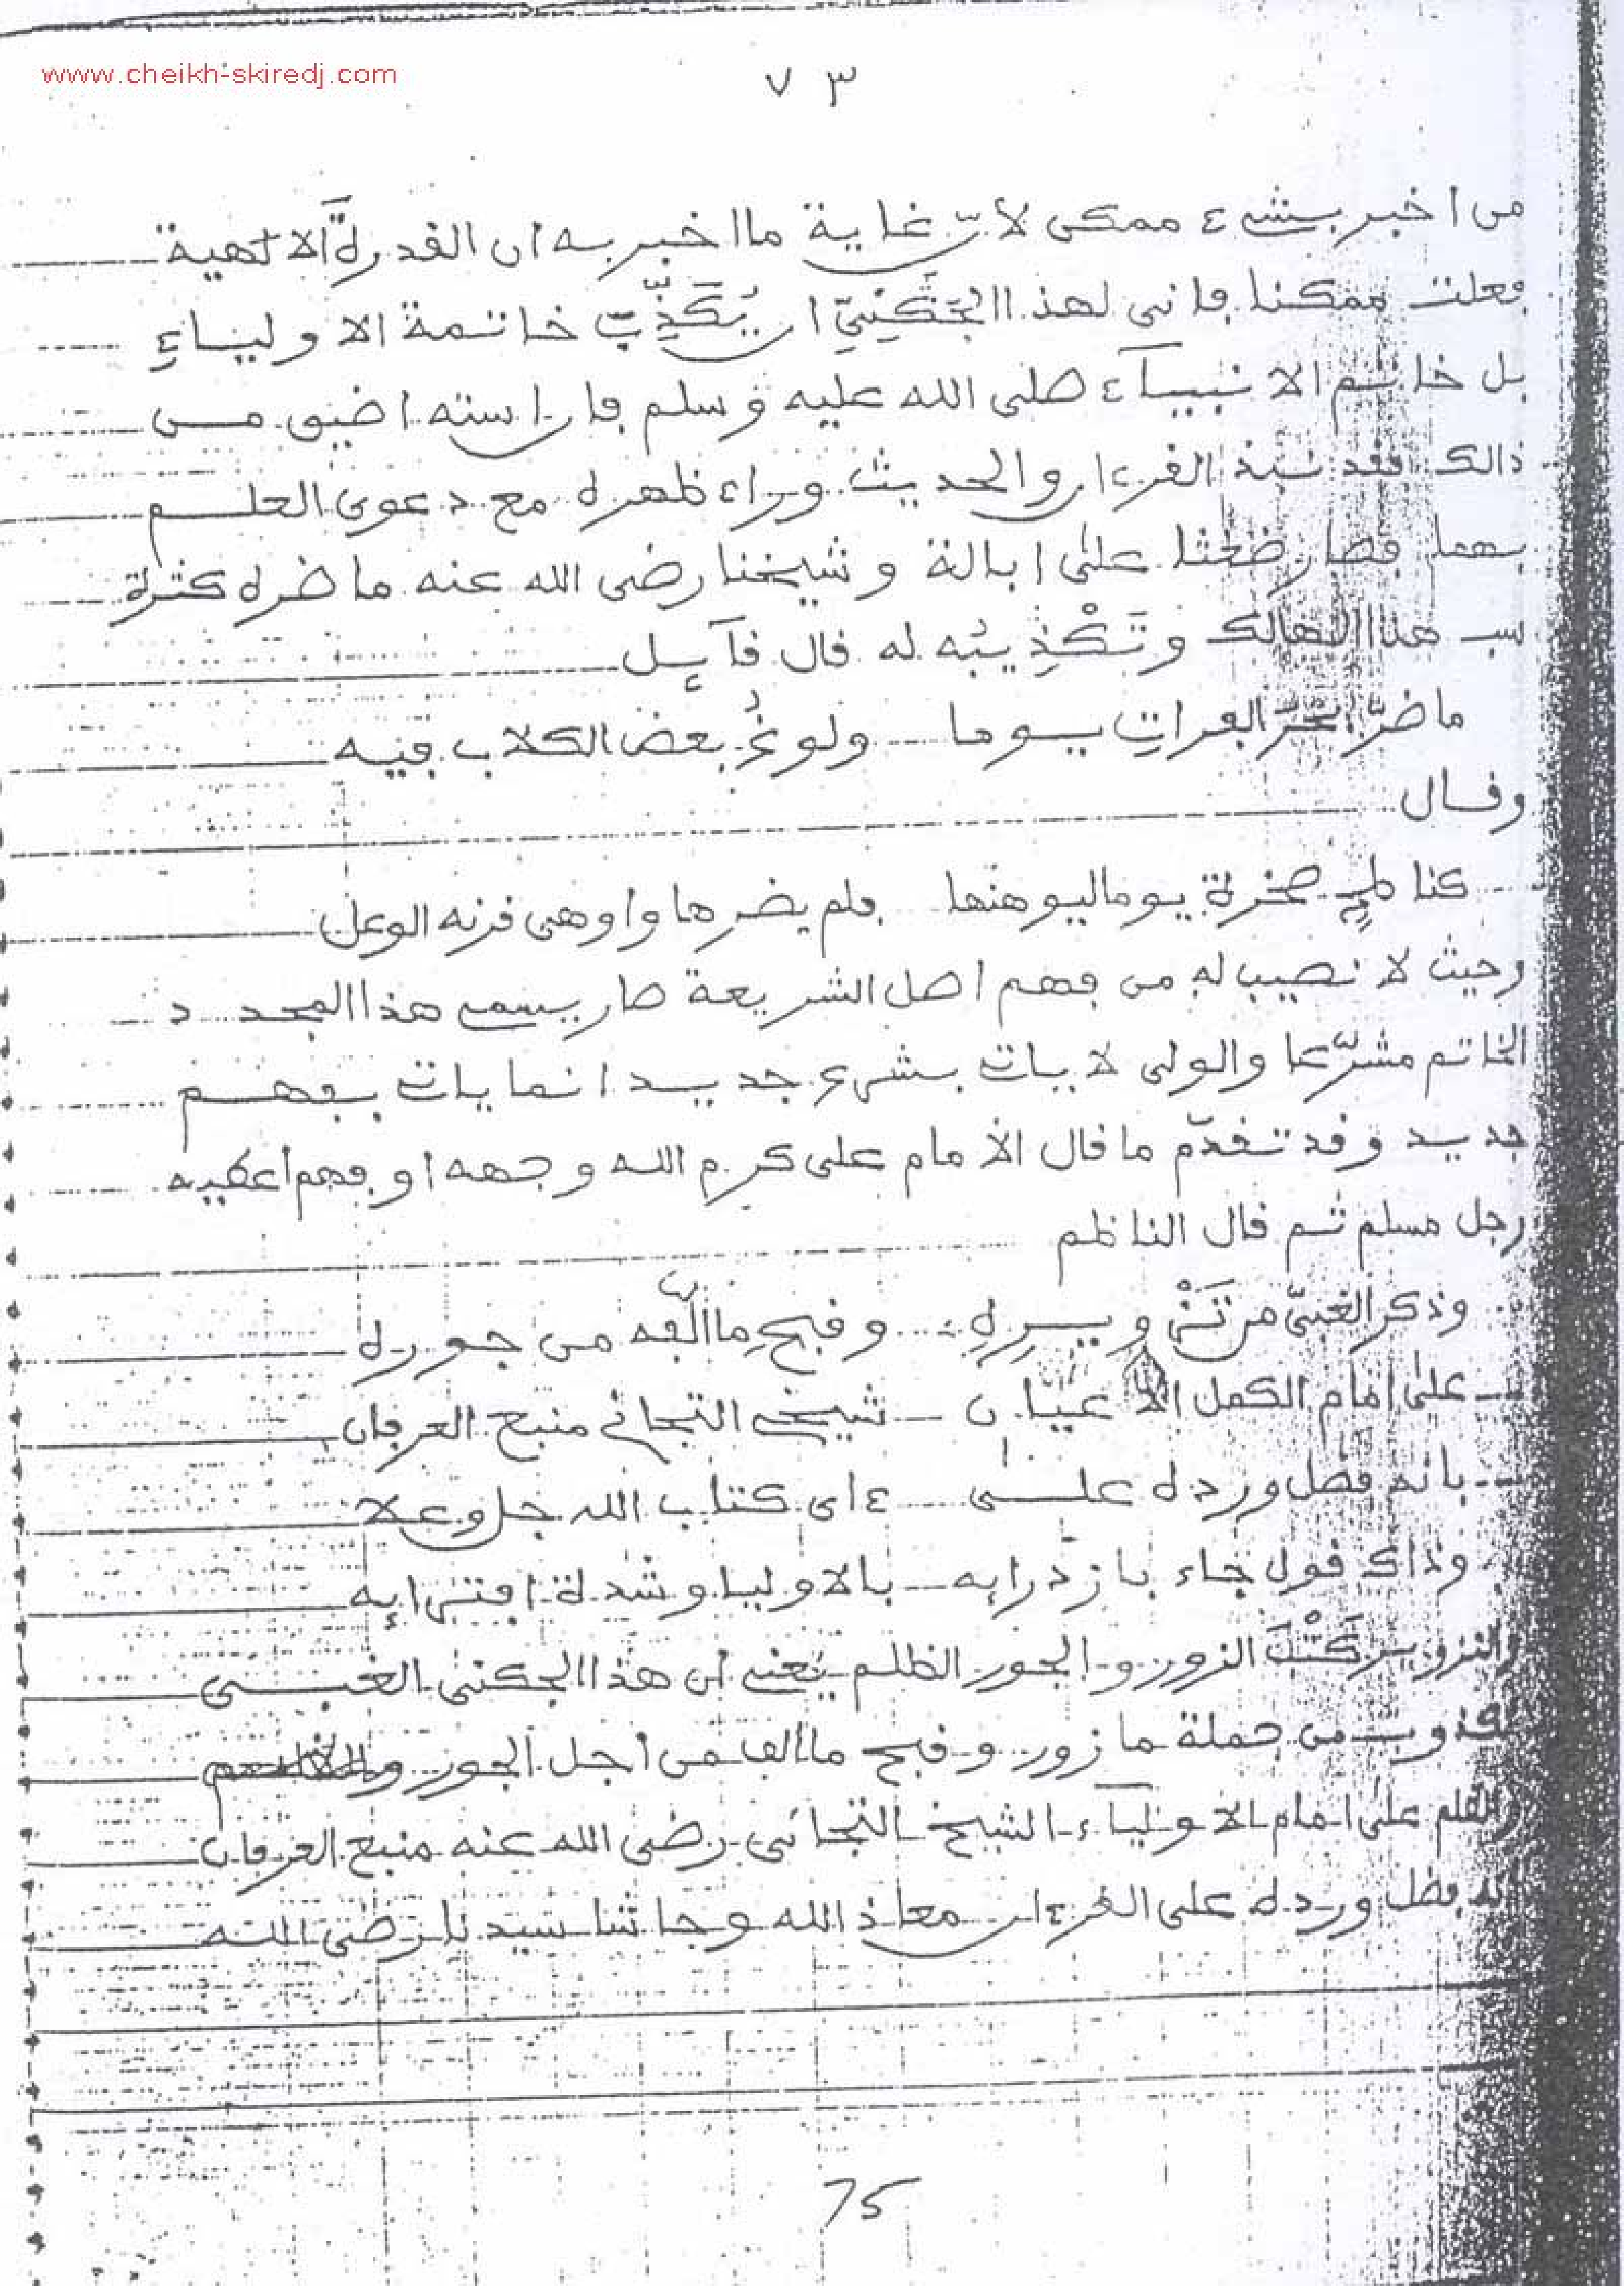 www.cheikh-skiredj.com
٧٣
من اخبر بشيء ممكن لأنّ غاية ما اخبر به ان القدرة الالهية
فعلت ممكنا فانى لهذا الجَكَنِيِّ ان يُكَذِّبَ خاتمة الاولياءِ
بل خاتم الانبياء صلى الله عليه وسلم فان استه اضيق من
ذالك فقد نبذ القرءان والحديث وراء ظهره مع دعوى العلم
بهما فصار ضغثا على ابالة وشيخنا رضى الله عنه ما ضره كثرة
سب هذا الهالك وتَكْذِيبُه له قال قآئِل
ما ضرّ بحرَ الفراتِ يوما ولوغُ بعض الكلاب فيه
وقال
كناطحٍ صخرة يوما ليوهنها فلم يضرها واوهى قرنه الوعل
وحيث لا نصيب له من فهم اصل الشريعة صار يسمى هذا المجدد
الخاتم مشرّعا والولى لا يات بشرع جديد انما يات بفهم
جديد وقد تقدّم ما قال الامام على كرم الله وجهه او فهم اعطيه
رجل مسلم ثم قال الناظم
وذكر الغبىّ من تَزْويرِهِ وقبحِ ما الّفه من جوره
على امام الكمل الاعيان شيخى التجانى منبع العرفان
بانه فضل ورده على ءاى كتاب الله جل وعلا
وذاك قول جاء بازدرايه بالاوليا وشدة افترايه
التزوير كَتْبُ الزور والجور الظلم يعنى ان هذا الجكنى الغبى
من جملة ما زور وقبح ما الف من أجل الجور
والظلم على امام الاولياء الشيخ التجانى رضى الله عنه منبع العرفان
انه فضل ورده على القرءان معاذ الله وحاشا سيدنا رضى الله
75